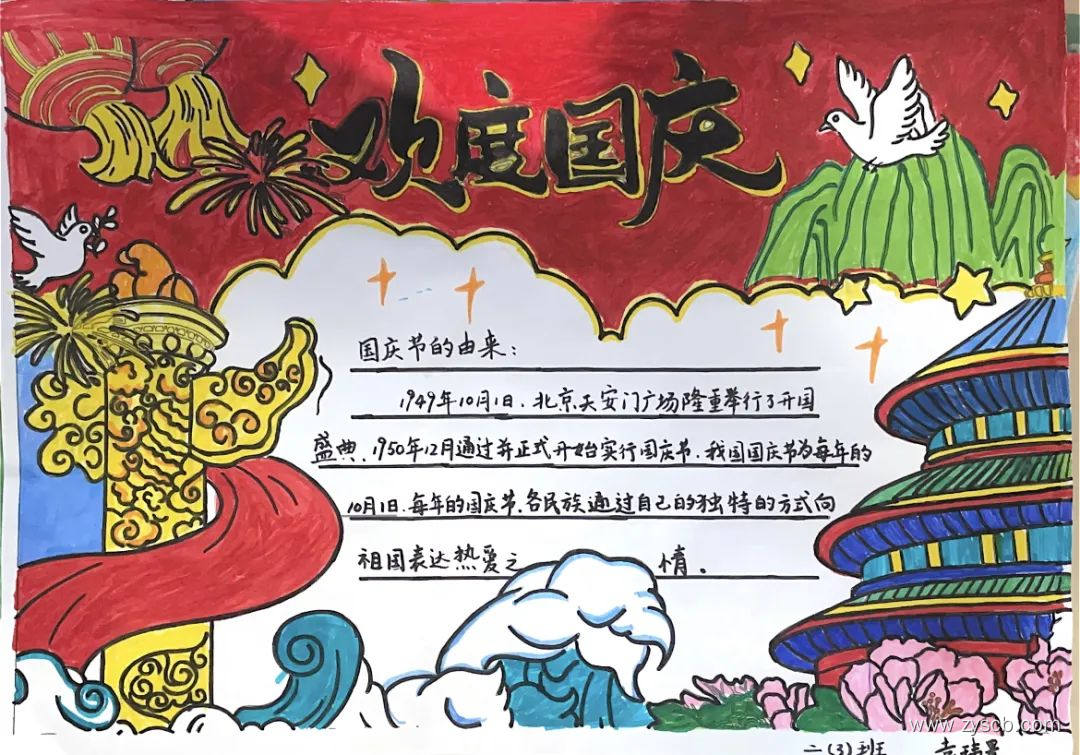 欢度国庆
国庆节的由来：
1949年10月1日、北京天安门广场隆重举行了开国
盛典、1950年12月通过并正式开始实行国庆节、我国国庆节为每年的
10月1日、每年的国庆节、各民族通过自己的独特的方式向
祖国表达热爱之情。
www.zyscb.com
二(3)班